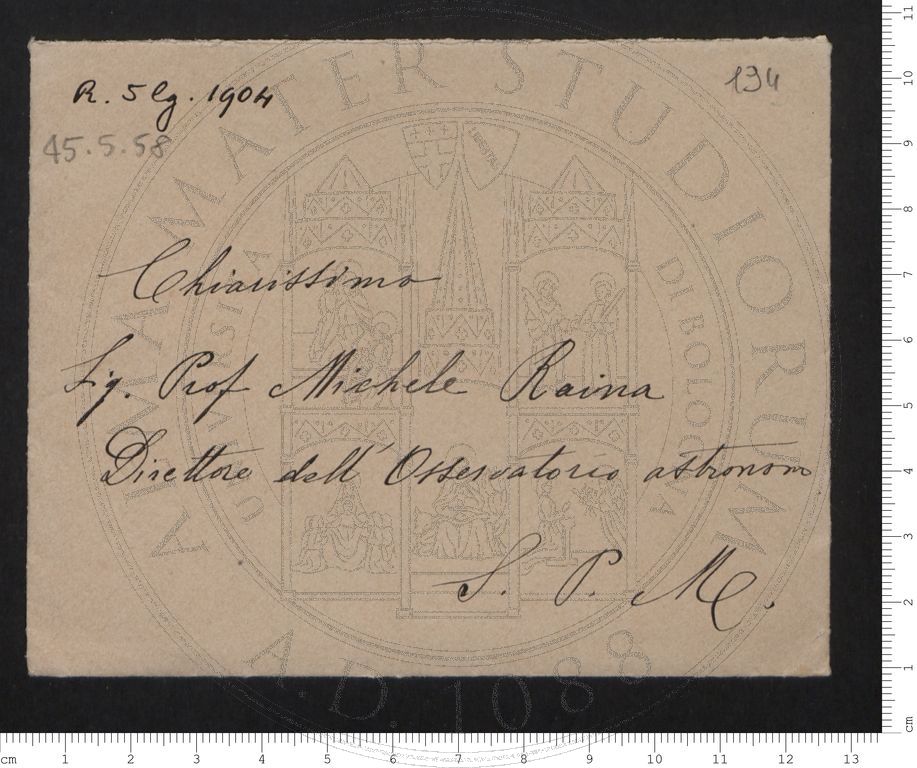 R. 5 lg. 1904
194
45.5.58
Chiarissimo
Sig. Prof Michele Raina
Direttore dell' Osservatorio astronom
S. P. M.
ALMA MATER STUDIORUM
A.D. 1088
UNIVERSITÀ DI BOLOGNA
LIBERTAS
cm 1 2 3 4 5 6 7 8 9 10 11 12 13
11
10
9
8
7
6
5
4
3
2
1
cm